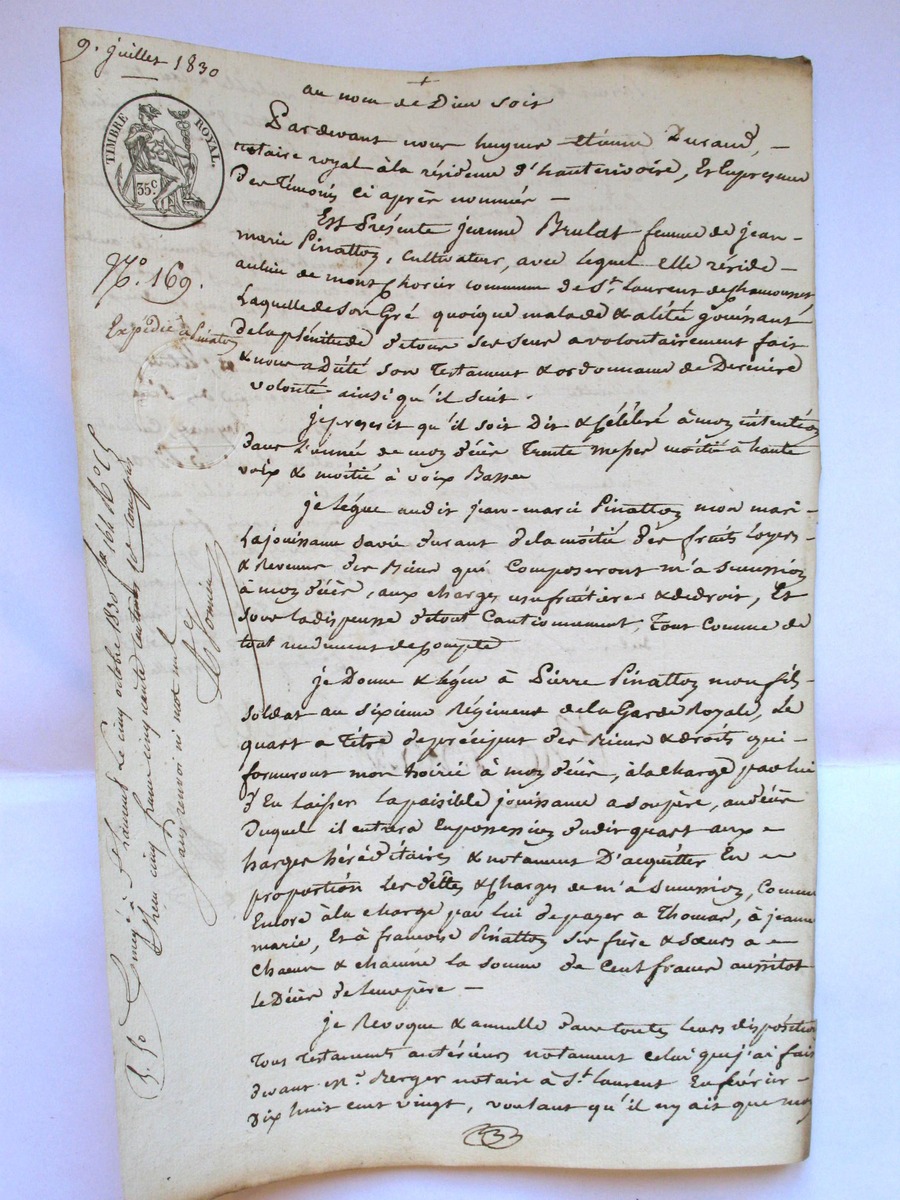 9. juillet 1830
TIMBRE ROYAL.
35.c
N.o 169.
Expédié à Pinatton
+
au nom de Dieu soit
Pardevant nous hugues étienne Durand, —
notaire royal à la résidence d'hauterivoire, Et En presence
Des Témoins ci après nommés —
Est Présente jeanne Brulat femme de jean-
marie Pinatton, cultivateur, avec lequel elle réside —
au lieu de montchorier commune de St. Laurent de chamousset
Laquelle de son Gré quoique malade & alité jouissant
de la plénitude de tous ses sens a volontairement fait
& nous a Dicté son Testament & ordonnance de Derniére
volonté ainsi qu'il suit.
je prescrit qu'il soit Dit & Célébré à mon intention
dans l'année de mon décès Trente messes moitié à haute
voix & moitié à voix Basse
je légue audit jean-marie Pinatton mon mari
La jouissance sa vie durant de la moitié des fruits Loyers
& Revenus des Biens qui composeront ma succession
à mon décès, aux charges usufruitieres & de droit, Et
sous la dispense de tout Cautionnement, Tout comme de
tout rendement de compte
je Donne & légue à Pierre Pinatton mon fils
soldat au sixieme Régiment de la Garde Royale, Le
quart a Titre de préciput des Biens & droits qui
formeront mon hoirie à mon décès, à la charge par lui
d'En laisser la paisible jouissance a son père, au décès
Duquel il entrera En possession dudit quart aux
charges héréditaires & notament D'acquitter En
proportion les dettes & charges de ma succession, Comme
Encore à la charge par lui de payer a Thomas, à jeanne
marie, Et à francoise Pinatton ses frère & sœurs a
chacun & chacune la somme de Cent francs aussitot
le Décès de leur père —
je Revoque & annulle dans toutes leurs dispositions
Tous Testaments antérieurs notament celui que j'ai fait
devant M.e Berger notaire à St. Laurent En février
Dix huit cent vingt, voulant qu'il n'y ait que mon
Enregé à le cinq octobre 1830 fo 164
cinq francs cinquante centimes
sans renvoi ni mot nul